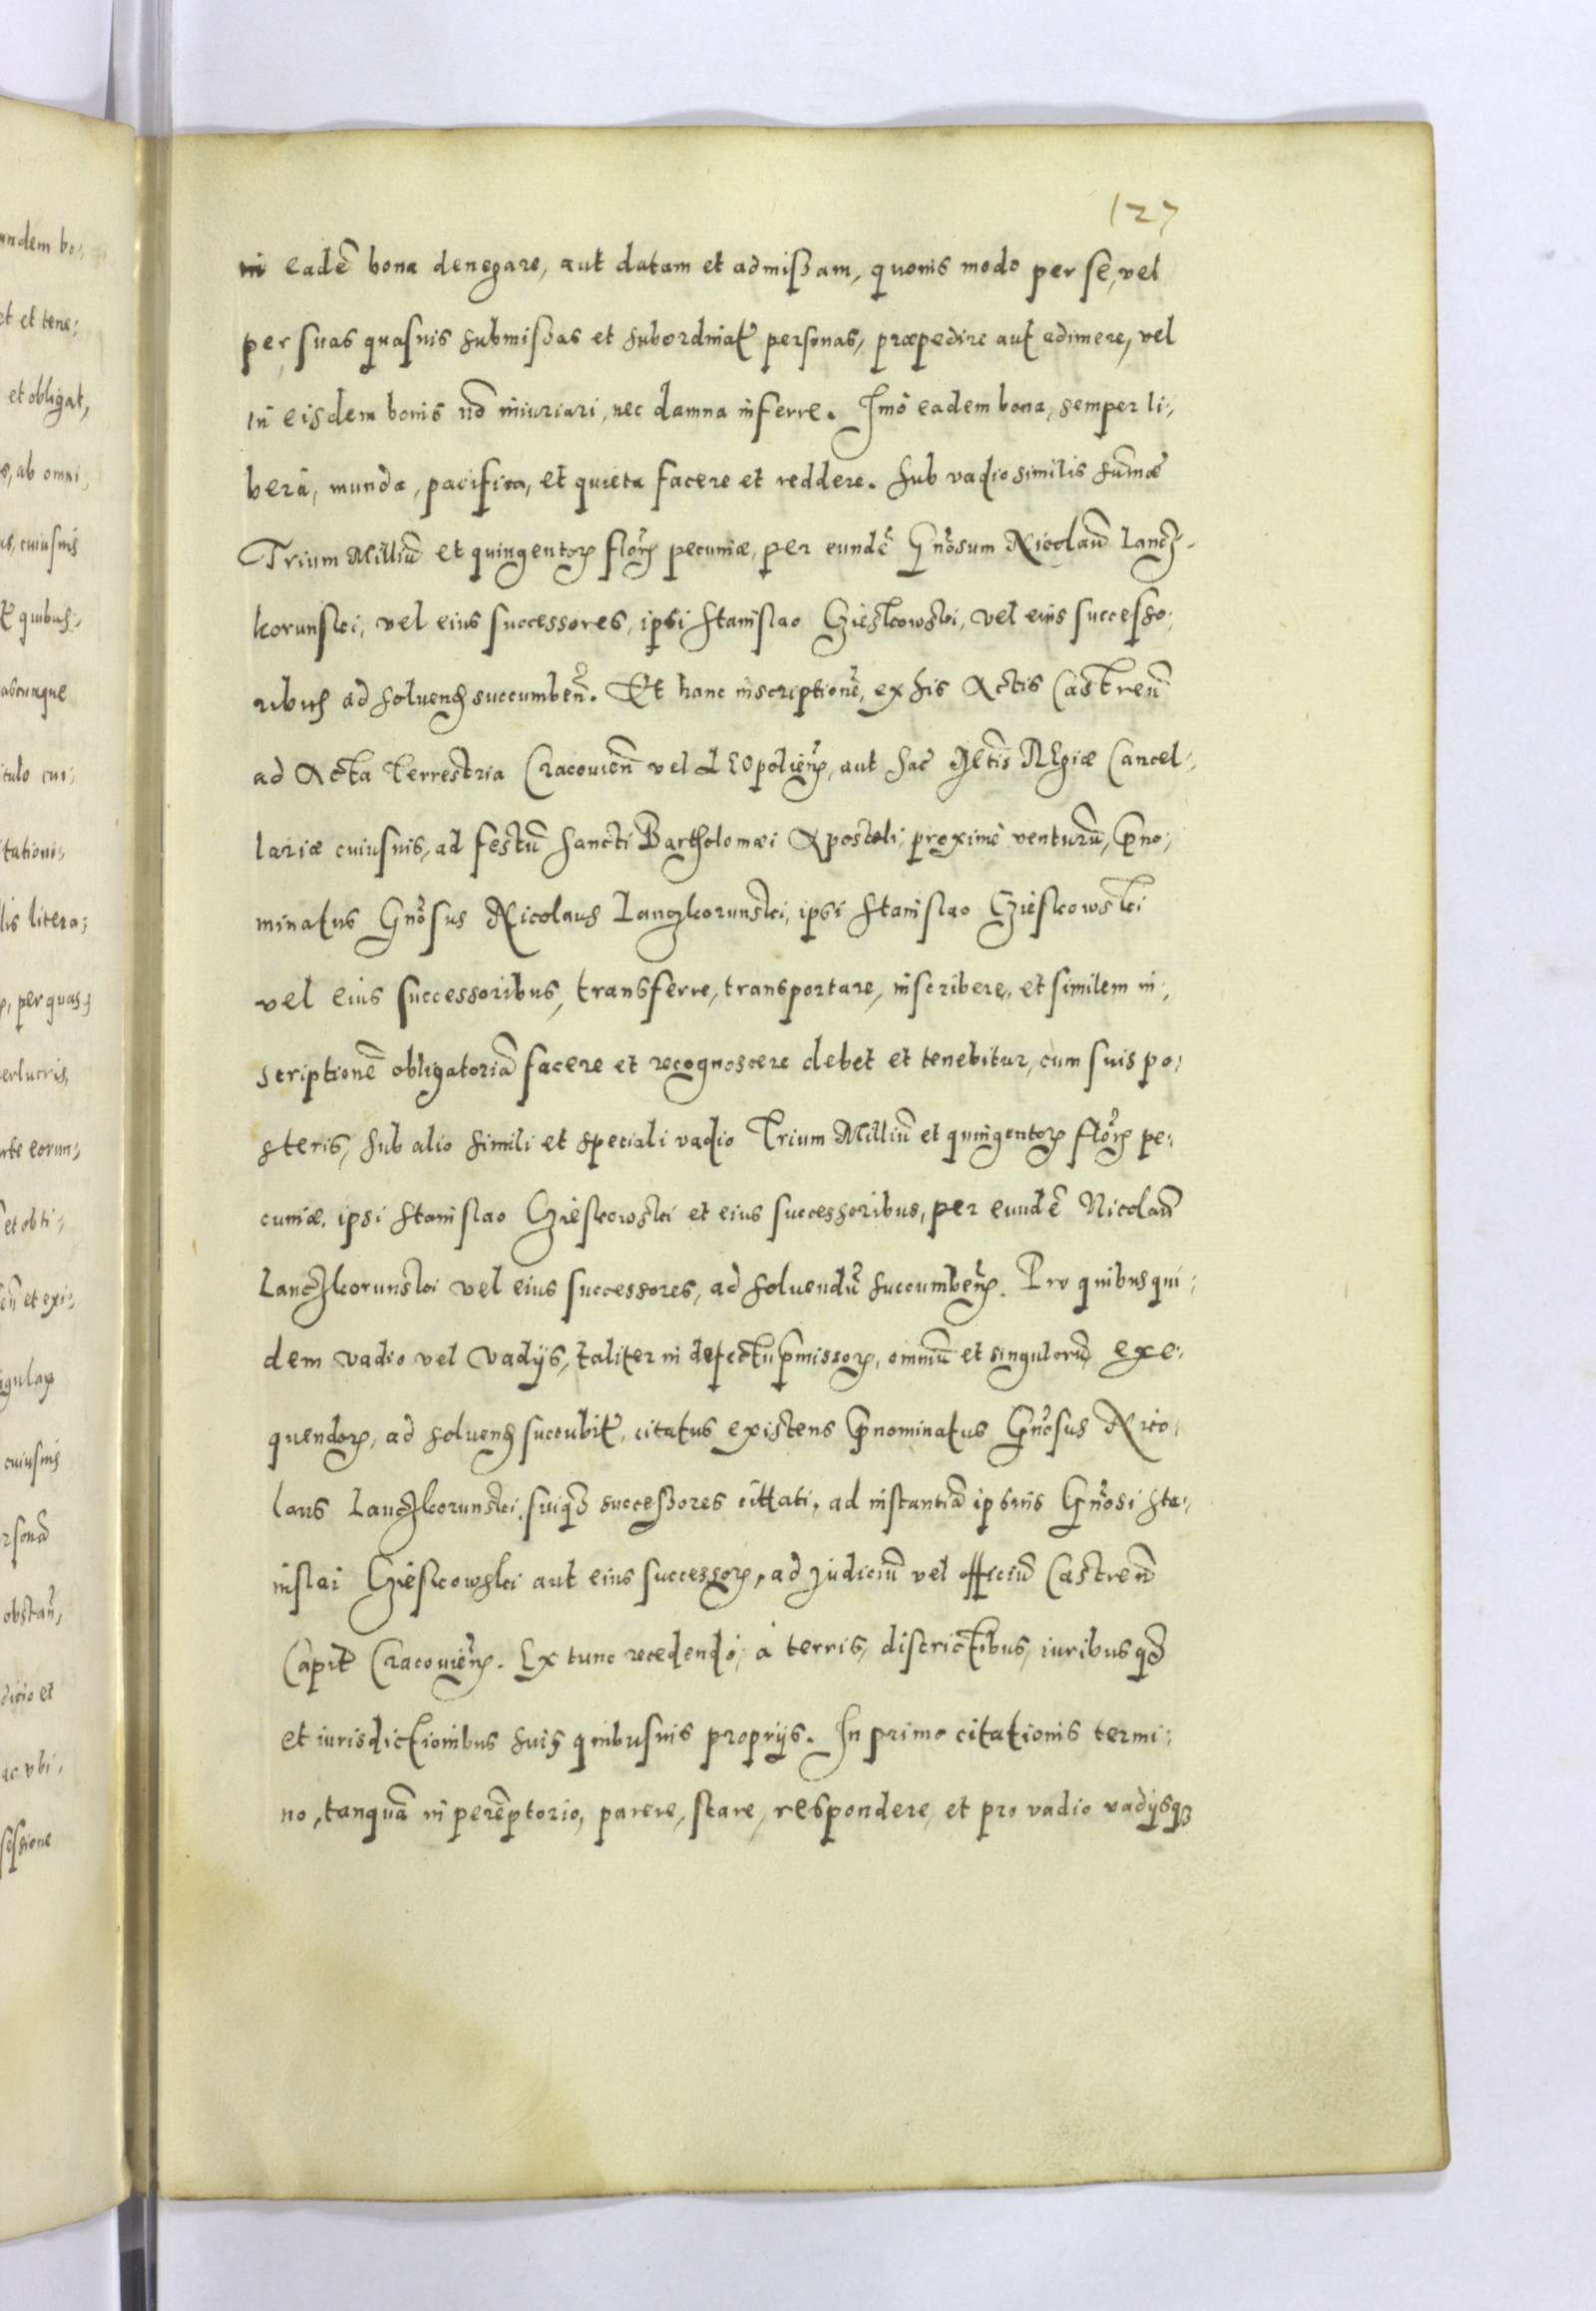 127
in eadē bona denegare, aut datam et admißam, quouis modo per se, vel
per suas quasuis submißas et subordinatꝭ personas, præpedire aut adimere, vel
in eisdem bonis nō iniuriari, nec damna inferre. Imò eadem bona, semper li:
bera, munda, pacifica, et quieta facere et reddere. sub vadio similis sum̄æ
Trium Milliū et quingentoꝝ floꝝ pecuniæ, per eundē Gn̄osum Nicolaū Lancz-
korunski, vel eius successores, ipsi Stanislao Gieskowski, vel eius successo:
ribus ad soluenꝭ succumben̄. Et hanc inscriptionē, ex his Actis Castren̄
ad Acta Terrestria Cracouien̄ vel Leopolien̄, aut Sac̄ Regiæ Cancel:
lariæ cuiusuis, ad festū Sancti Bartholomæi Apostoli, proximè venturū, p̄no:
minatus Gn̄osus Nicolaus Lanczkorunski, ipsi Stanislao Gieskowski
vel eius successoribus, transferre, transportare, inscribere, et similem in:
scriptionē obligatoriā facere et recognoscere debet et tenebitur, cum suis po:
steris, sub alio simili et speciali vadio Trium Milliū et quingentoꝝ floꝝ pe:
cuniæ, ipsi Stanislao Gieskowski et eius successoribus, per eundē Nicolaū
Lanczkorunski vel eius successores, ad soluendū succumben̄. Pro quibus qui:
dem vadio vel vadijs, taliter in defectū p̄missoꝝ, omniū et singulorū exe:
quendoꝝ, ad soluenꝭ succubitꝭ, citatus existens p̄nominatus Gn̄osus Nico:
laus Lanczkorunski, suiqꝫ succeßores cittati, ad instantiā ipsius Gn̄osi Sta:
nislai Gieskowski aut eius successoꝝ, ad Judiciū vel officiū Castren̄
Capitꝭ Cracouien̄. Ex tunc recedendo, à terris, districtibus, iuribusqꝫ
et iurisdictionibus suis quibusuis proprijs. In primo citationis termi:
no, tanquā in perēptorio, parere, stare, respondere, et pro vadio vadijsqꝫ